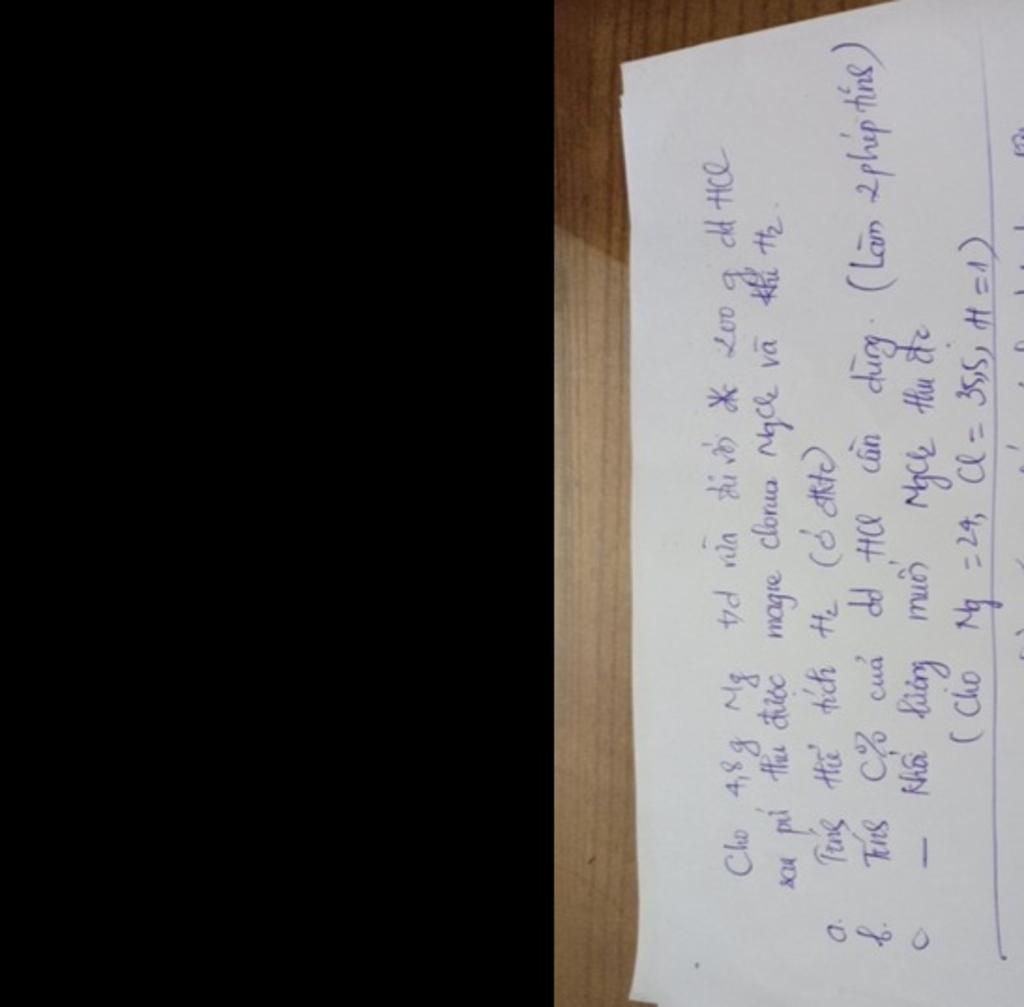 Cho 4,8g Mg t/d vừa đủ với 200 g dd HCl
sau pứ thu được magie clorua MgCl2 và khí H2.
a. Tính thể tích H2 (ở đktc)
b. Tính C% của dd HCl cần dùng. (Làm 2 phép tính)
c — khối lượng muối MgCl2 thu đc
(Cho Mg = 24, Cl = 35,5, H = 1)